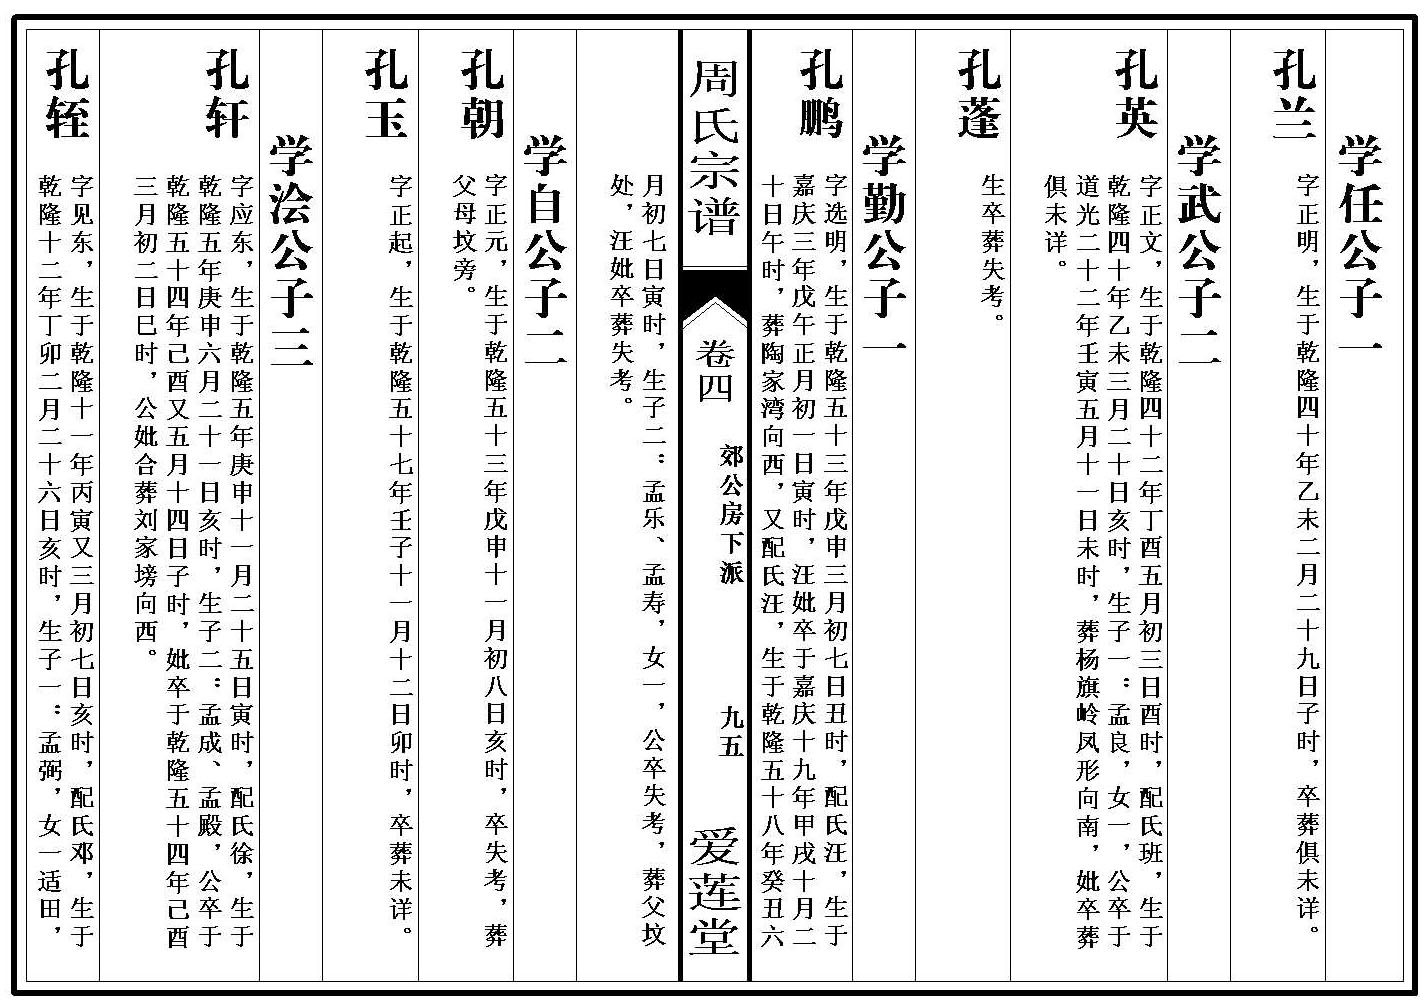 学任公子一
孔兰
字正明，生于乾隆四十年乙未二月二十九日子时，卒葬俱未详。
学武公子二
孔英
字正文，生于乾隆四十二年丁酉五月初三日酉时，配氏班，生于
乾隆四十年乙未三月二十日亥时，生子一：孟良，女一，公卒于
道光二十二年壬寅五月十一日未时，葬杨旗岭凤形向南，妣卒葬
俱未详。
孔蓬
生卒葬失考。
学勤公子一
孔鹏
字选明，生于乾隆五十三年戊申三月初七日丑时，配氏汪，生于
嘉庆三年戊午正月初一日寅时，汪妣卒于嘉庆十九年甲戌十月二
十日午时，葬陶家湾向西，又配氏汪，生于乾隆五十八年癸丑六
周氏宗谱
卷四
郊公房下派
九五
爱莲堂
月初七日寅时，生子二：孟乐、孟寿，女一，公卒失考，葬父坟
处，汪妣卒葬失考。
学自公子二
孔朝
字正元，生于乾隆五十三年戊申十一月初八日亥时，卒失考，葬
父母坟旁。
孔玉
字正起，生于乾隆五十七年壬子十一月十二日卯时，卒葬未详。
学浍公子三
孔轩
字应东，生于乾隆五年庚申十一月二十五日寅时，配氏徐，生于
乾隆五年庚申六月二十一日亥时，生子二：孟成、孟殿，公卒于
乾隆五十四年己酉又五月十四日子时，妣卒于乾隆五十四年己酉
三月初二日巳时，公妣合葬刘家塝向西。
孔轾
字见东，生于乾隆十一年丙寅又三月初七日亥时，配氏邓，生于
乾隆十二年丁卯二月二十六日亥时，生子一：孟弼，女一适田，